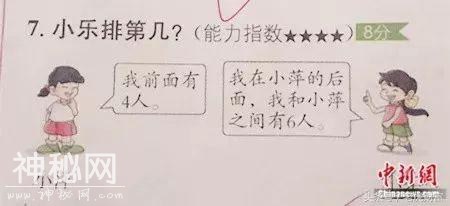 7. 小乐排第几？（能力指数★★★★） 8分
我前面有
4人。
我在小萍的后
面，我和小萍
之间有6人。
神秘网
中新网